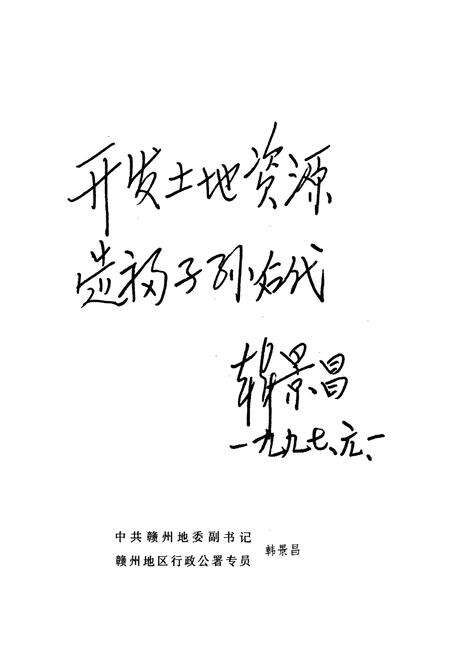 开发土地资源
造福子孙后代
韩景昌
一九九七、元、一
中共赣州地委副书记
赣州地区行政公署专员 韩景昌